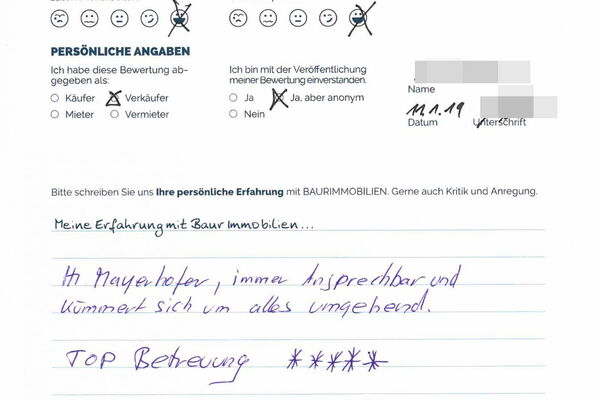 PERSÖNLICHE ANGABEN
Ich habe diese Bewertung ab-
gegeben als:
Käufer
Verkäufer
Mieter
Vermieter
Ich bin mit der Veröffentlichung
meiner Bewertung einverstanden.
Ja
Ja, aber anonym
Nein
Name
11.1.19
Datum
Unterschrift
Bitte schreiben Sie uns Ihre persönliche Erfahrung mit BAURIMMOBILIEN. Gerne auch Kritik und Anregung.
Meine Erfahrung mit Baur Immobilien...
Hr Mayerhofer, immer Ansprechbar und
kümmert sich um alles umgehend.
TOP Betreuung *****